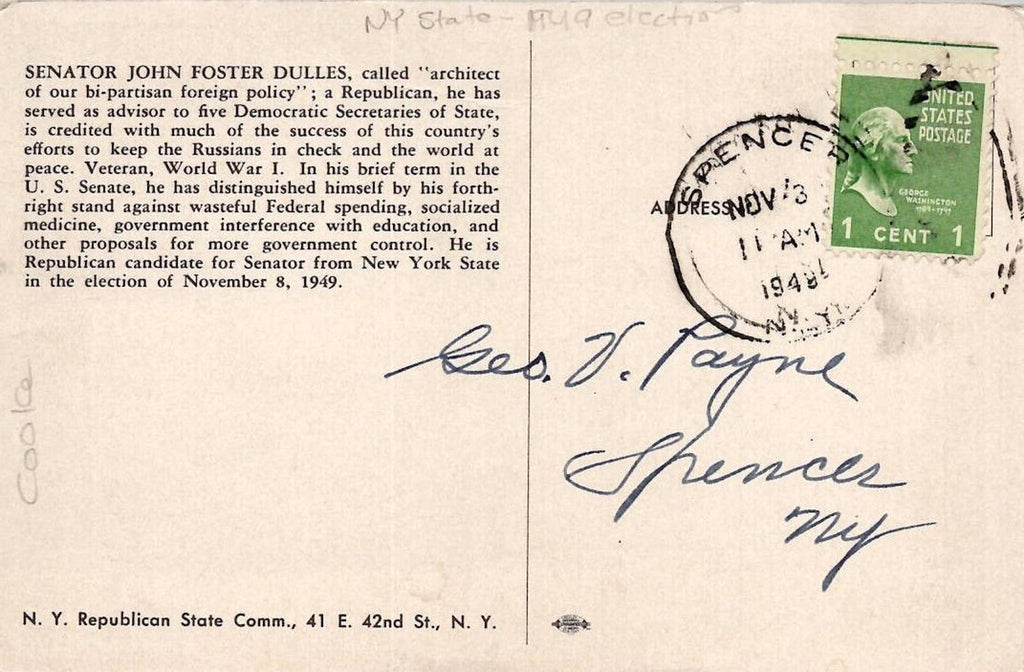 NY State - 1949 election
SENATOR JOHN FOSTER DULLES, called "architect
of our bi-partisan foreign policy"; a Republican, he has
served as advisor to five Democratic Secretaries of State,
is credited with much of the success of this country's
efforts to keep the Russians in check and the world at
peace. Veteran, World War I. In his brief term in the
U. S. Senate, he has distinguished himself by his forth-
right stand against wasteful Federal spending, socialized
medicine, government interference with education, and
other proposals for more government control. He is
Republican candidate for Senator from New York State
in the election of November 8, 1949.
N. Y. Republican State Comm., 41 E. 42nd St., N. Y.
UNITED
STATES
POSTAGE
GEORGE
WASHINGTON
1789-1797
1 CENT 1
SPENCER
NOV 3
11 AM
1949
N. Y.
ADDRESS
Geo. V. Payne
Spencer
NY